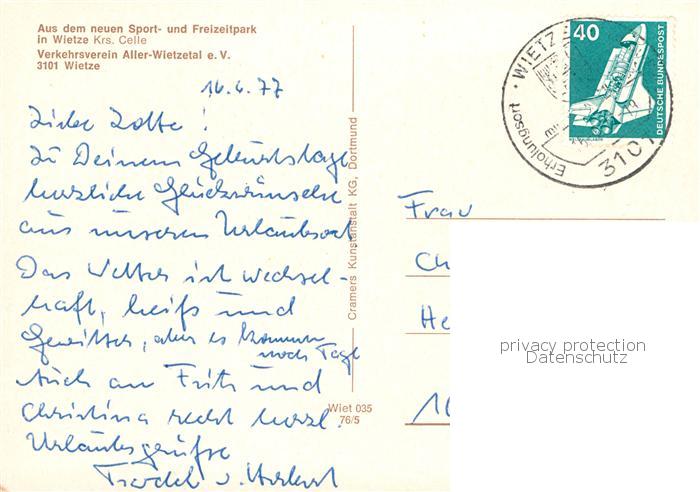 Aus dem neuen Sport- und Freizeitpark
in Wietze Krs. Celle
Verkehrsverein Aller-Wietzetal e. V.
3101 Wietze
16.6.77
Liebe Lotte!
Zu Deinem Geburtstage
herzliche Glückwünsche
aus unserem Urlaubsort
Das Wetter ist wechsel-
haft, heiß und
Gewitter, aber es kommen
noch Tage
Auch an Fritz und
Christina recht herzl.
Urlaubsgrüße
u. Herbert
Cramers Kunstanstalt KG, Dortmund
Wiet 035
76/5
40
DEUTSCHE BUNDESPOST
WIETZE
Erholungsort
3101
Frau
Ch
He
privacy protection
Datenschutz